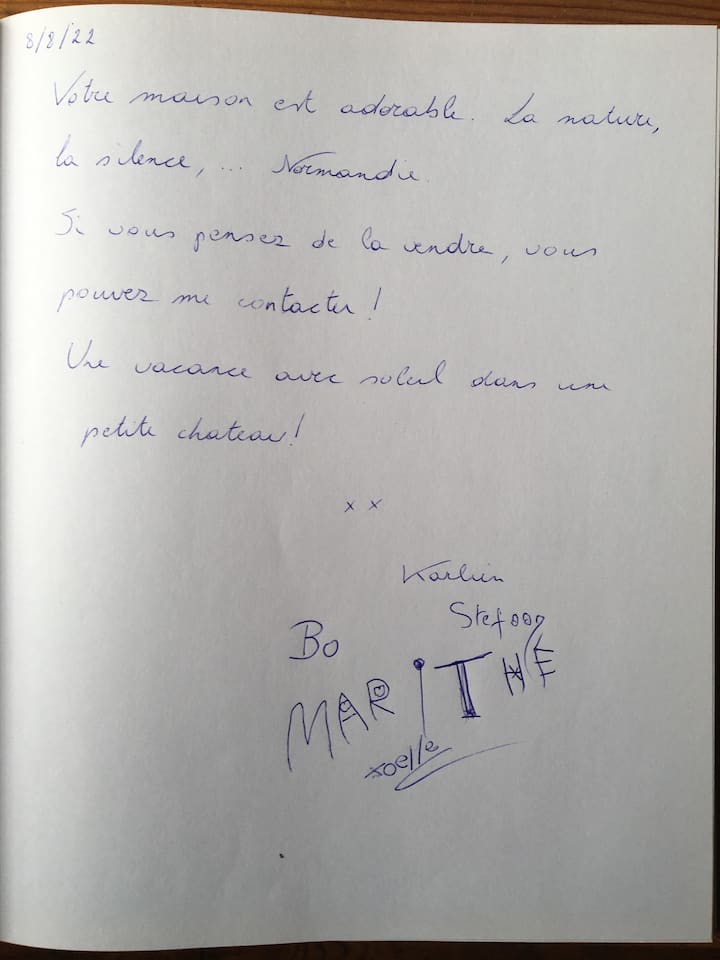 8/8/22
Votre maison est adorable. La nature,
la silence, ... Normandie.
Si vous pensez de la vendre, vous
pouvez me contacter !
Une vacance avec soleil dans une
petite chateau!
x x
Karlien
Stefaan
Bo
MARiTHÉ
xoelle